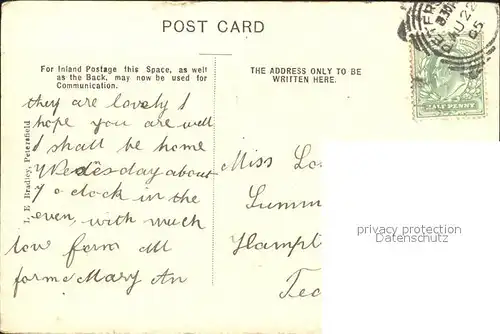 POST CARD
For Inland Postage this Space, as well
as the Back, may now be used for
Communication.
THE ADDRESS ONLY TO BE
WRITTEN HERE.
they are lovely I
hope you are well
I shall be home
Wedesday about
7 o clock in the
even, with much
love form M
forme Mary An
I. E. Bradley, Petersfield
Miss Lo
Summ
Hampt
Ted
HALFPENNY
AU 22
05
privacy protection
Datenschutz